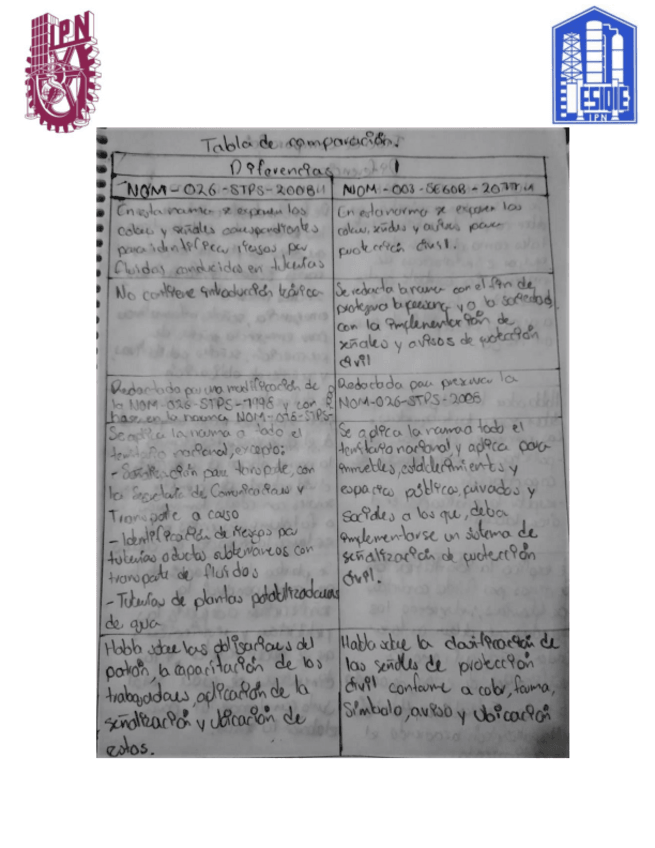 IPN
ESIQIE
IPN
Tabla de comparación.
Diferencias
NOM-026-STPS-2008
NOM-003-SEGOB-2011
En esta norma se exponen los
colores y señales correspondientes
para identificar riesgos por
fluidos conducidos en tuberías
En esta norma se exponen los
colores, señales y avisos para
protección civil.
No contiene introducción teórica
Se redacta la norma con el fin de
proteger a la persona y a la sociedad,
con la implementación de
señales y avisos de protección
civil
Redactada por una modificación de
la NOM-026-STPS-1998 y con
base en la norma NOM-026-STPS-
Redactada para preservar la
NOM-026-STPS-2008
Se aplica la norma a todo el
territorio nacional, excepto:
- Señalización para transporte, con
la Secretaría de Comunicaciones y
Transporte a cargo
- Identificación de riesgos por
tuberías o ductos subterráneos con
transporte de fluidos
- Tuberías de plantas potabilizadoras
de agua
Se aplica la norma a todo el
territorio nacional y aplica para
inmuebles, establecimientos y
espacios públicos, privados y
sociales a los que, deba
implementarse un sistema de
señalización de protección
civil.
Habla sobre las obligaciones del
patrón, la capacitación de los
trabajadores, aplicación de la
señalización y ubicación de
estos.
Habla sobre la clasificación de
las señales de protección
civil conforme a color, forma,
símbolo, aviso y ubicación